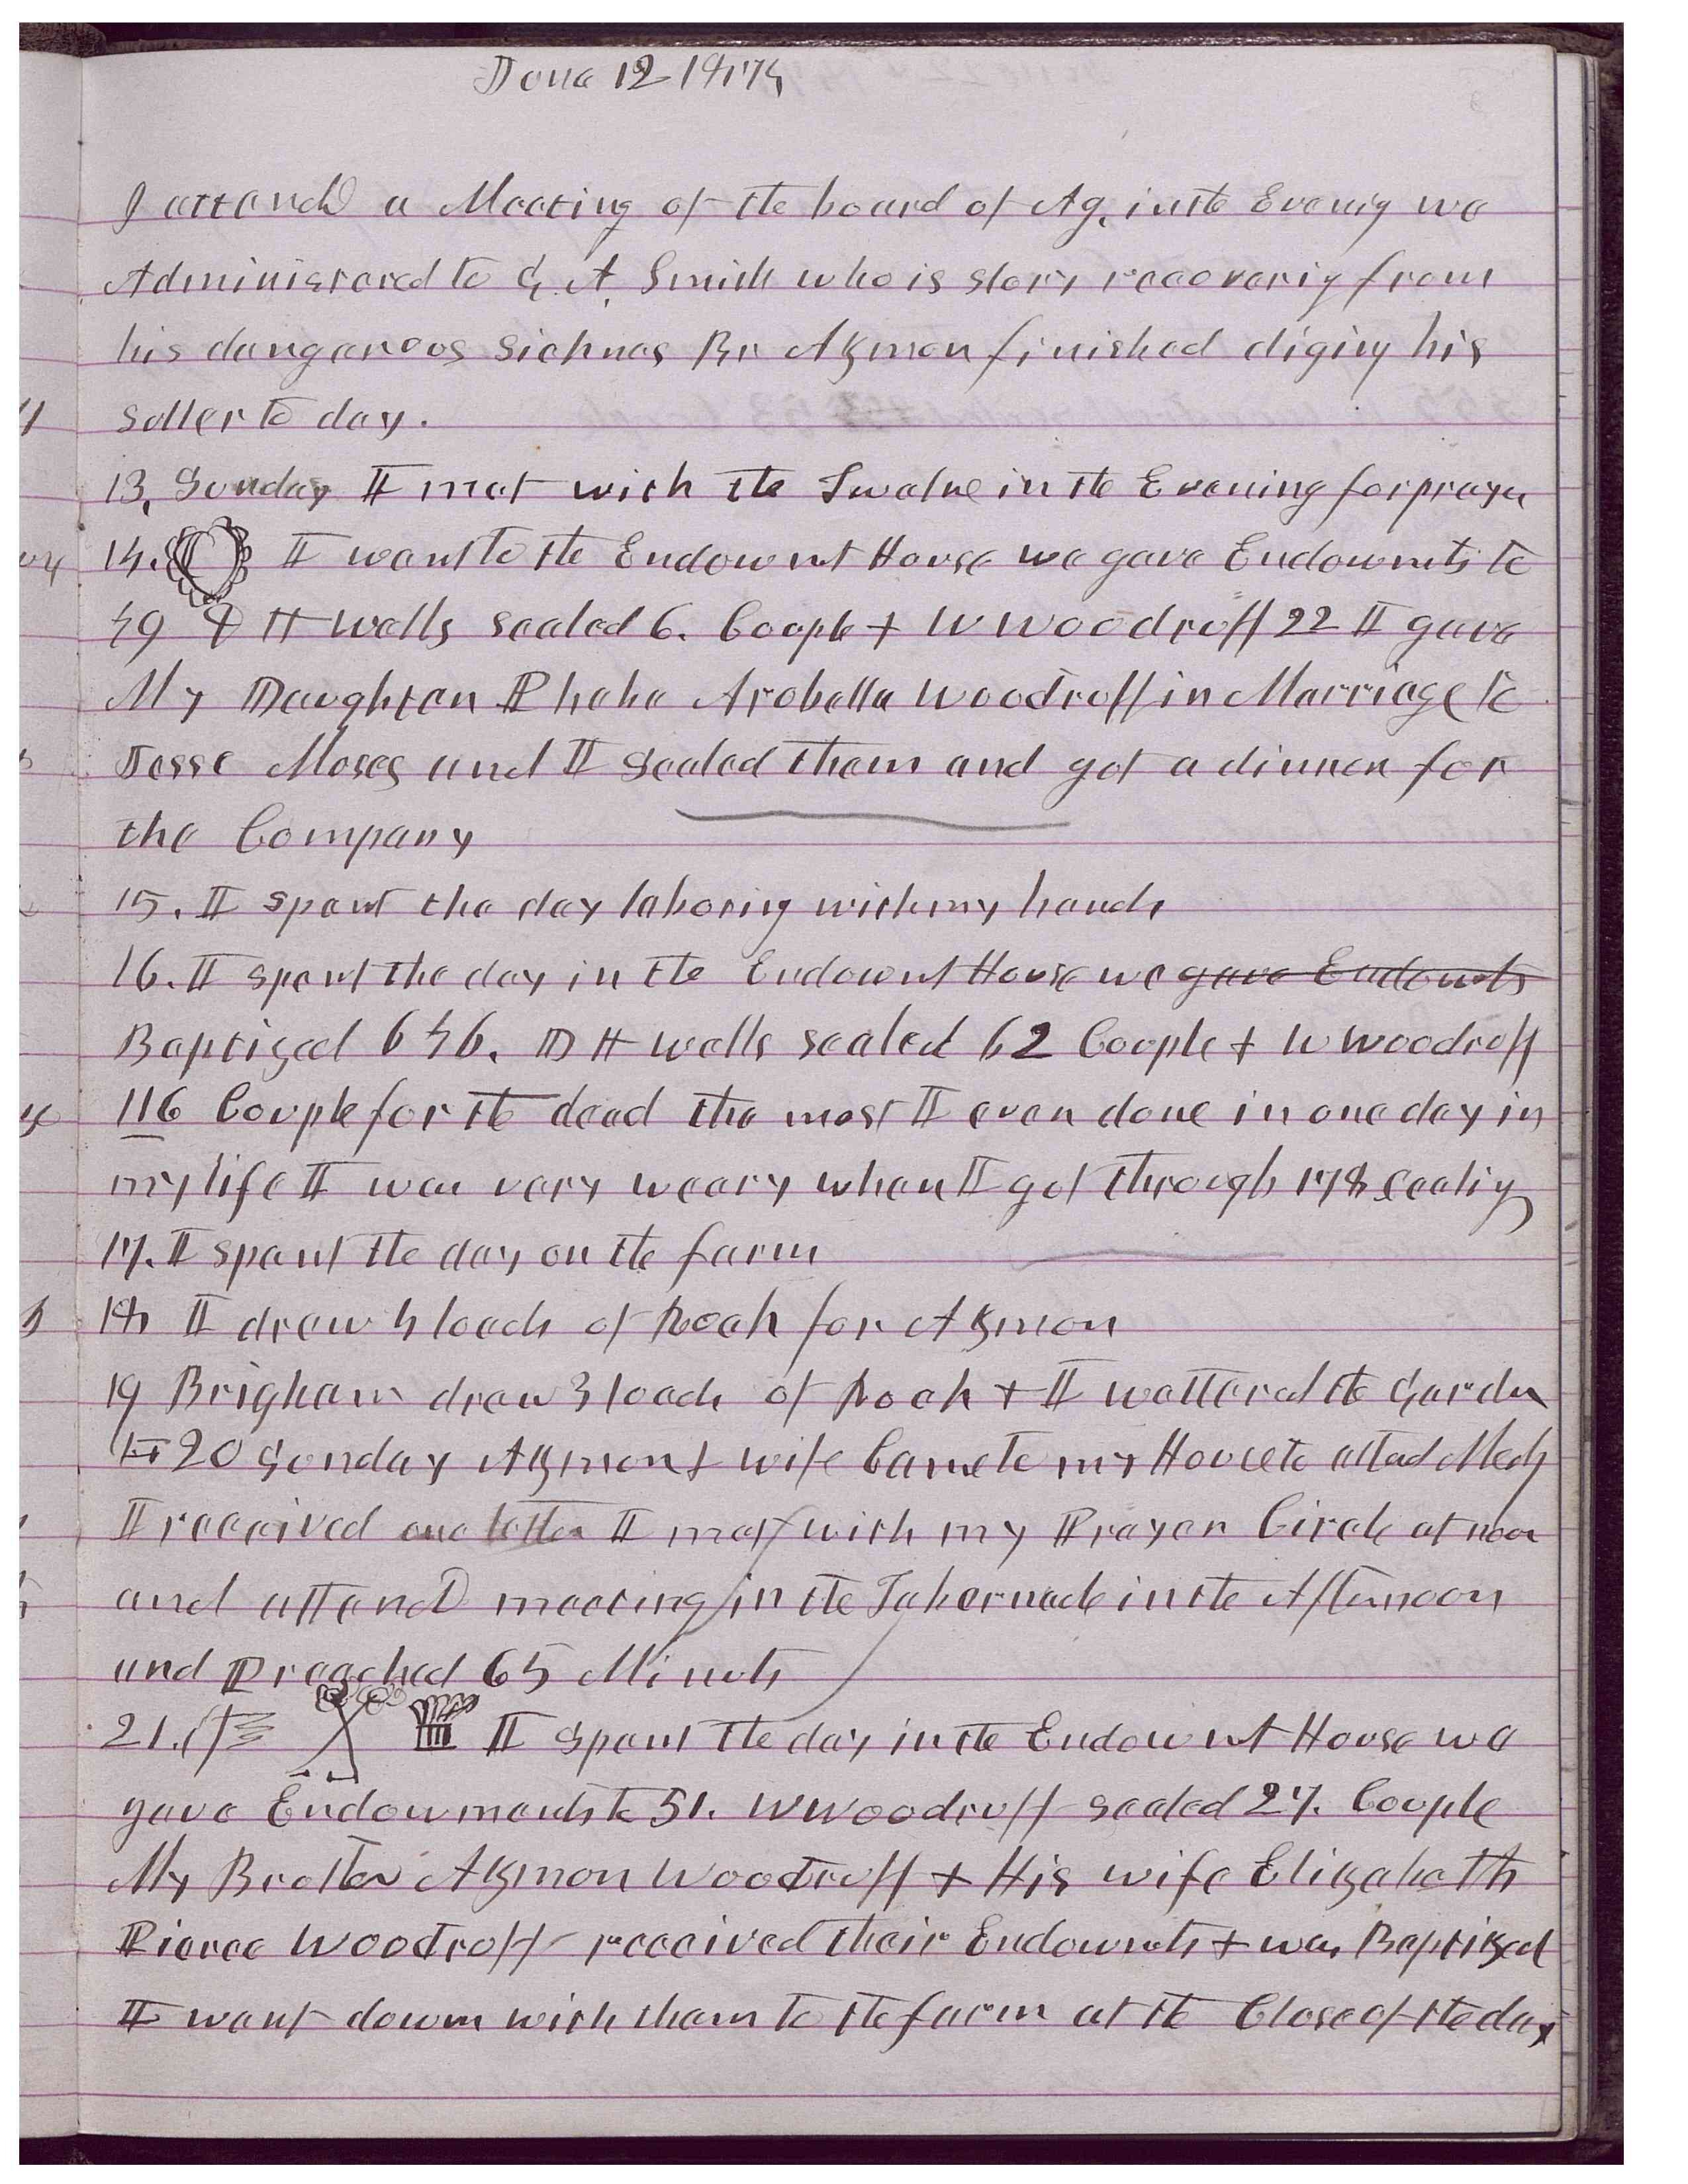 June 12 1875
I attend a Meeting of the board of Ag. in the Evenig we
Administered to G. A. Smith who is slory recoverig from
his dangerous Sicknes Br Azmon finished digig his
seller to day.
13, Sunday I met with the Twelve in the Evening for prayer
14. I went to the Endowmt House we gave Endowmts to
49 D H wells sealed 6. Couple & W Woodruff 22 I gave
My Daughter Phebe Arabella Woodruff in Marriage to
Jesse Moses and I Sealed them and got a dinner for
the Company
15. I spent the day laboring with my hands
16. I spent the day in the Endowmt House we gave Endowmts
Baptized 646. D H wells sealed 62 Couple & W Woodruff
116 Couple for the dead the most I ever done in one day in
my life I was very weary when I got through 178 Sealig
17. I spent the day on the farm
18 I drew 4 loads of Rock for Azmon
19 Brigham drew 3 loads of Rock & I wattered the Garden
20 Sunday Azmon & wife Came to my House to attend Meetg
I received one letter I met with my Prayer Circle at noon
and attend meeting in the Tabernacle in the Afternoon
and Preached 65 Minuts
21. I spent the day in the Endowmt House we
gave Endowments to 51. W Woodruff sealed 27. Couple
My Brother Azmon Woodruff & His wife Elizabeth
Pierce Woodruff received their Endowmts & was Baptized
I went down with them to the farm at the Close of the day